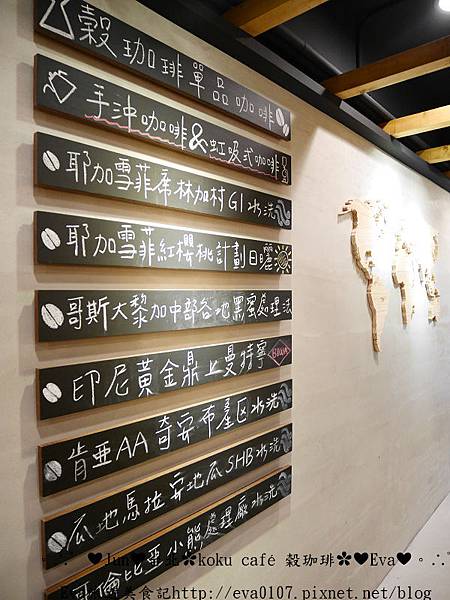 穀珈琲單品咖啡
手沖咖啡&虹吸式咖啡
耶加雪菲席林加村G1水洗
耶加雪菲紅櫻桃計劃日曬
哥斯大黎加中部各地黑蜜處理法
印尼黃金鼎上曼特寧
肯亞AA奇安布產區水洗
瓜地馬拉安地瓜SHB水洗
哥倫比亞小熊處理廠水洗
koku café 穀珈琲✽♥Eva♥。∴
美食記http://eva0107.pixnet.net/blog